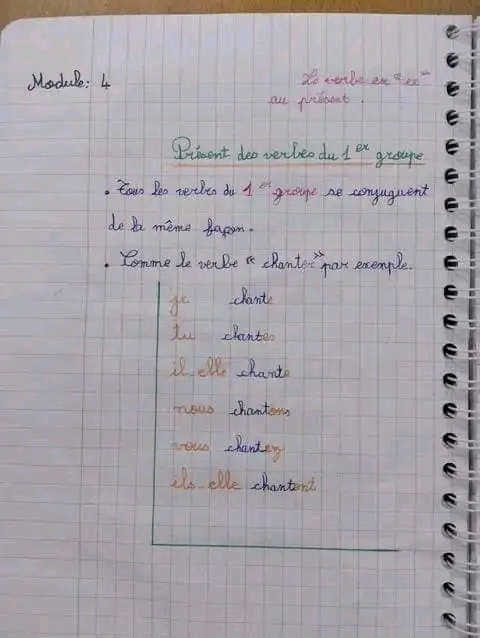 Module: 4
Le verbe en "er"
au présent.
Présent des verbes du 1er groupe
• Tous les verbes du 1er groupe se conjuguent
de la même façon.
• Comme le verbe "chanter" par exemple.
je chante
tu chantes
il-elle chante
nous chantons
vous chantez
ils-elle chantent